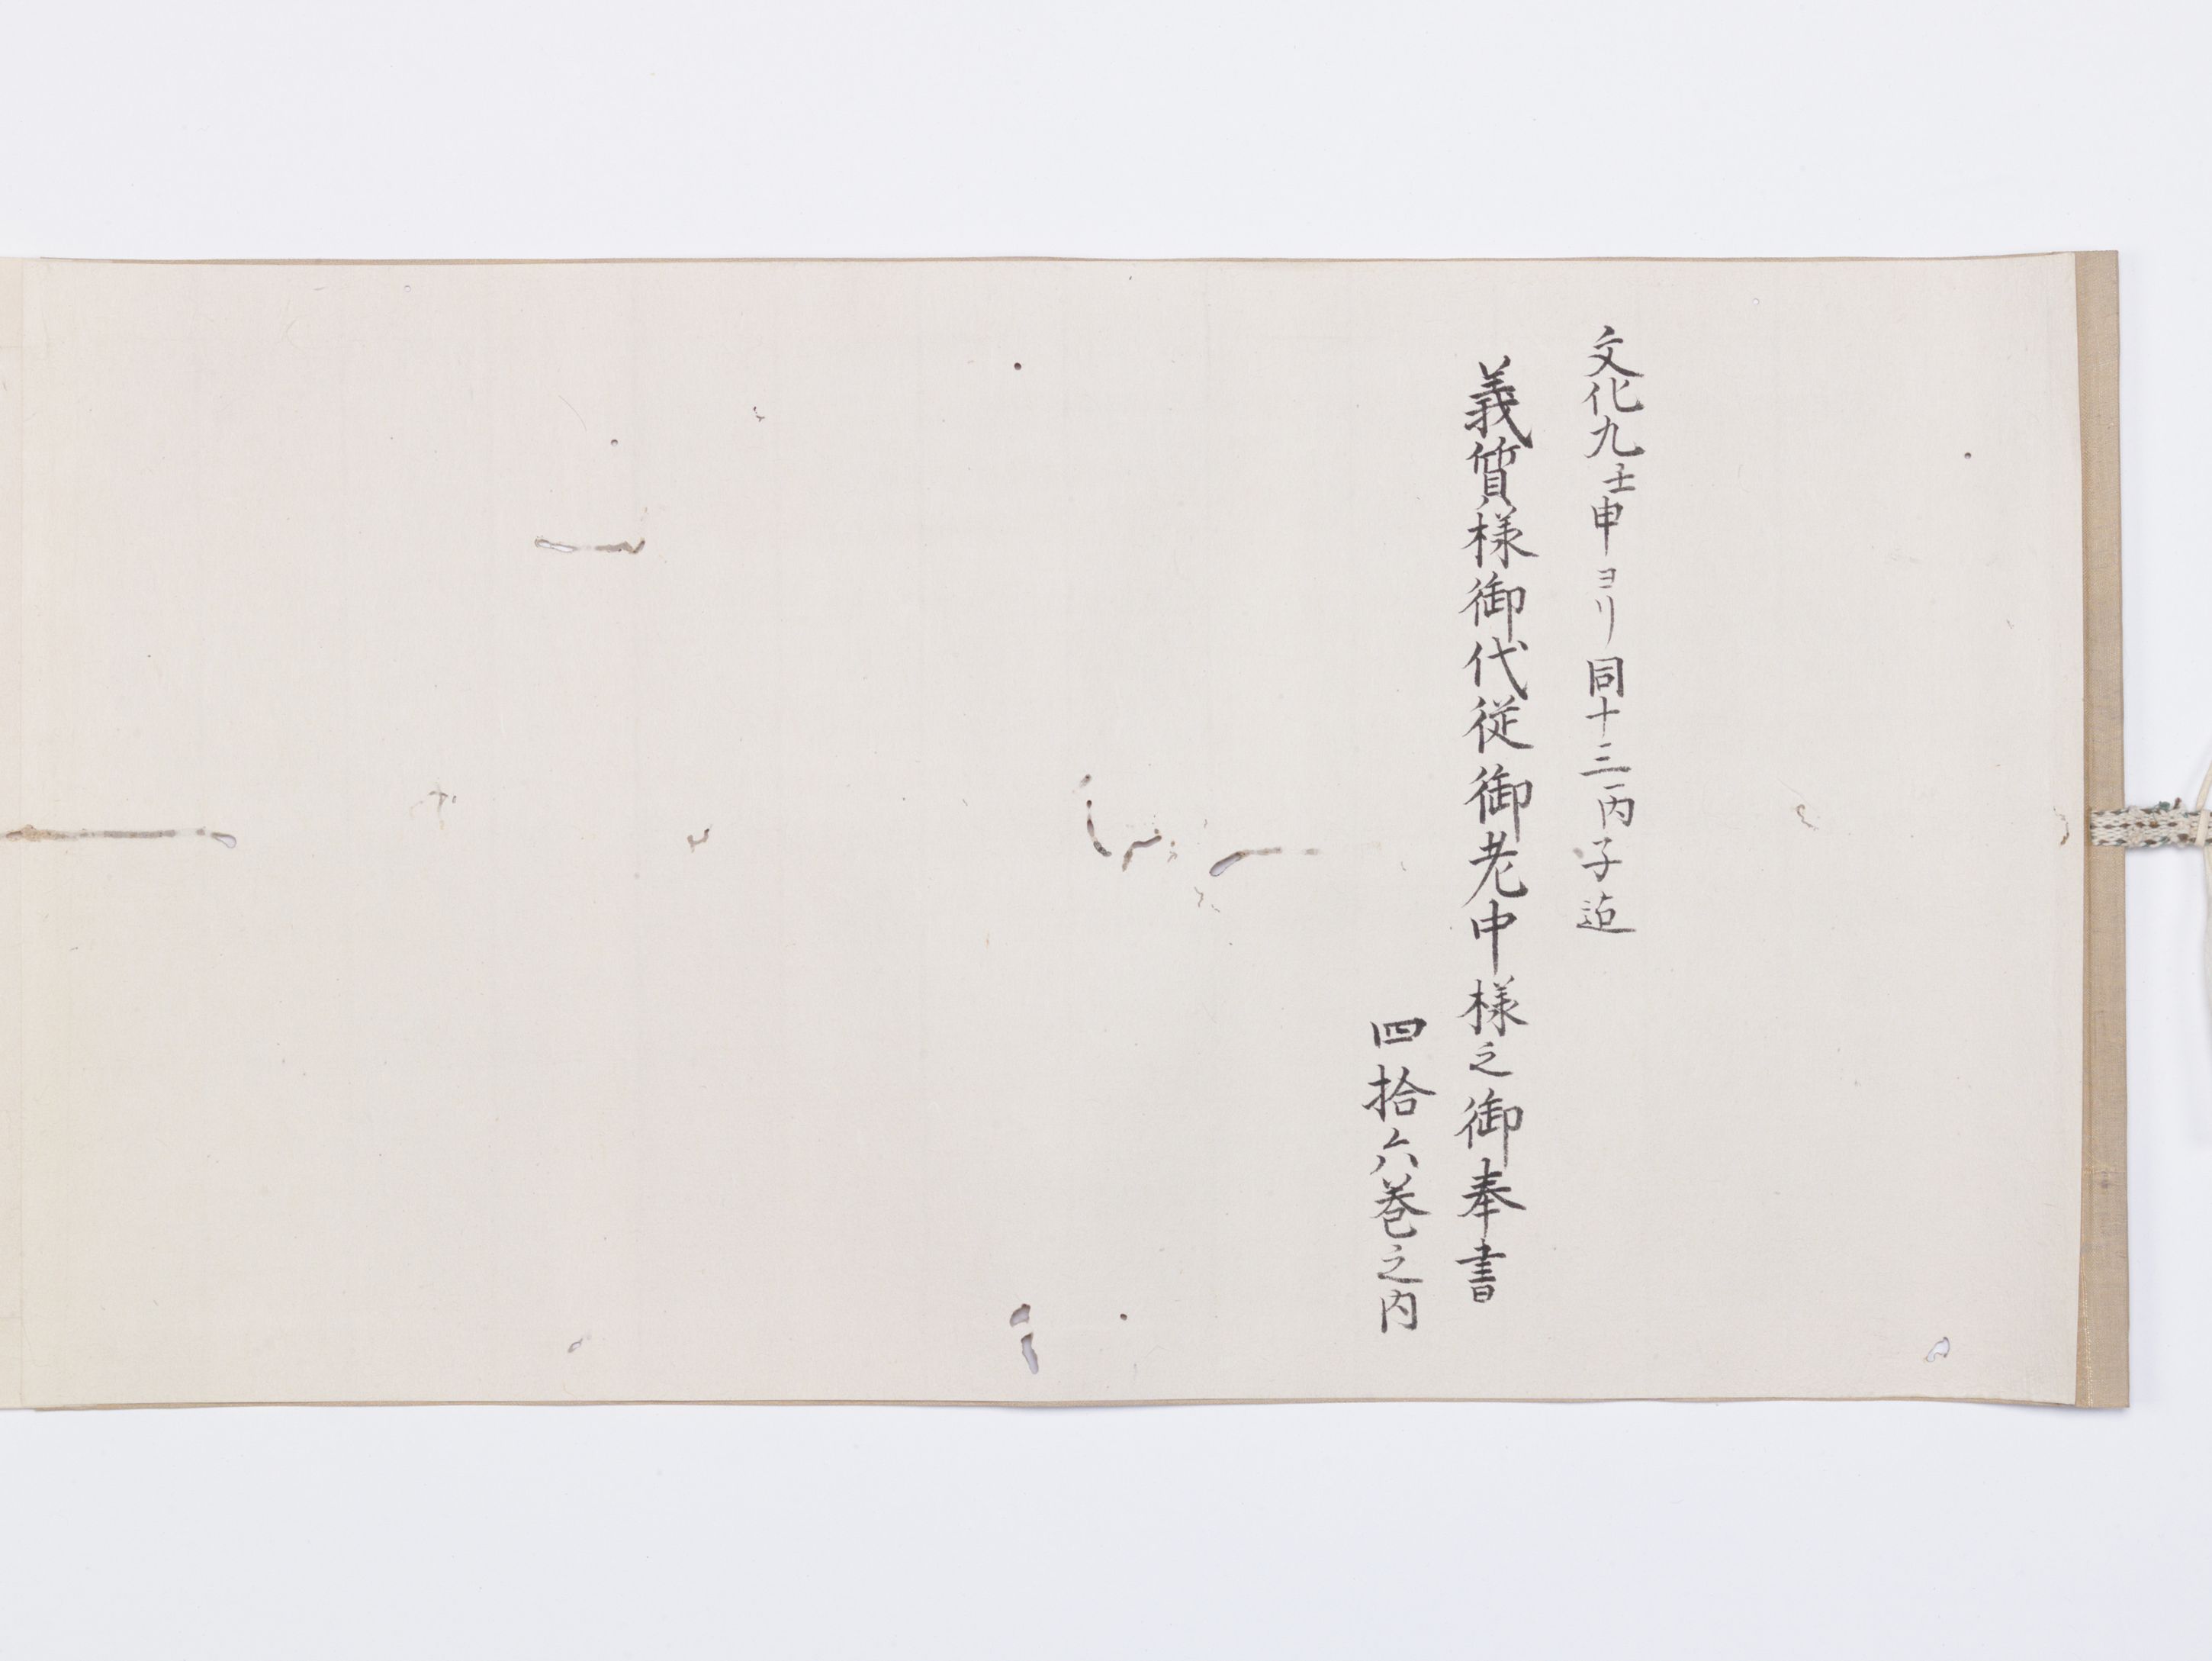 文化九壬申ヨリ同十三丙子迠
義質様御代従御老中様之御奉書
四拾六巻之内